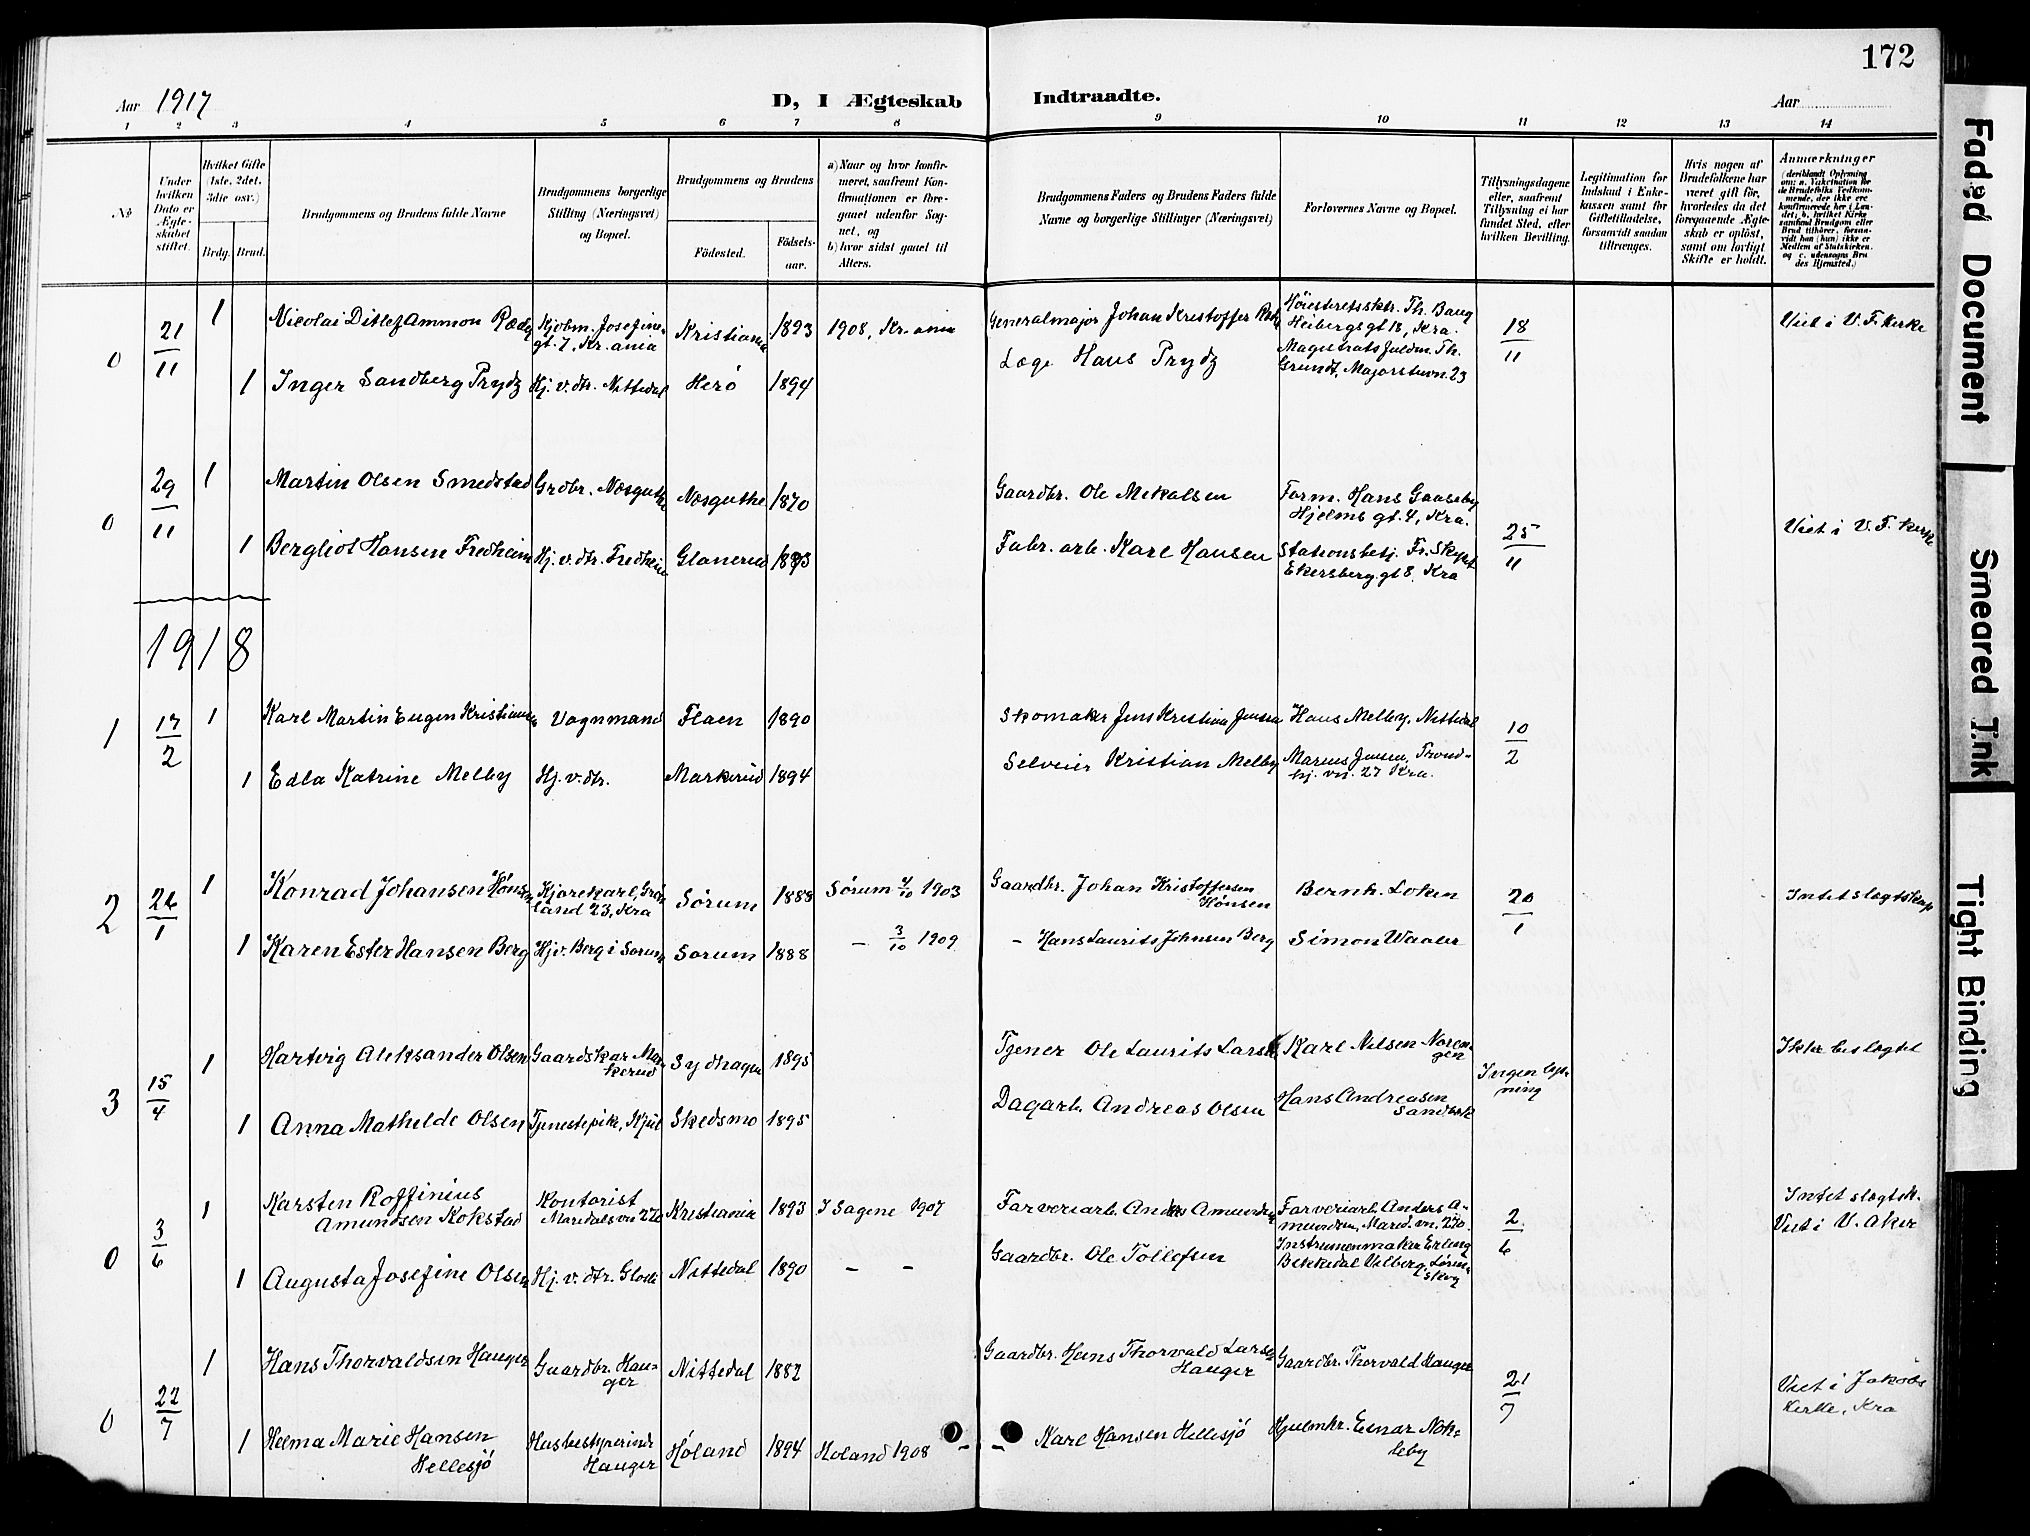 172
Aar 1917
D, I Ægteskab Indtraadte.
Aar
1 2 3 4 5 6 7 8 9 10 11 12 13 14
No
Under hvilken Dato er Ægteskabet stiftet.
Hvilket Gifte (1ste, 2det, 3die osv.)
Brdg. Brud.
Brudgommens og Brudens fulde Navne
Brudgommens borgerlige Stilling (Næringsvei) og Bopæl.
Brudgommens og Brudens
Fødested.
Fødselsaar.
a) Naar og hvor konfirmeret, saafremt Konfirmationen er foregaaet udenfor Sognet, og
b) hvor sidst gaaet til Alters.
Brudgommens Faders og Brudens Faders fulde Navne og borgerlige Stillinger (Næringsvei)
Forlovernes Navne og Bopæl.
Tillysningsdagene eller, saafremt Tillysning ei har fundet Sted, efter hvilken Bevilling.
Legitimation for Indskud i Enkekassen samt for Giftetilladelse, forsaavidt saadan tiltrænges.
Hvis nogen af Brudefolkene har været gift før, hvorledes da det foregaaende Ægteskab er opløst, samt om lovligt Skifte er holdt.
Anmerkninger
(deriblandt Oplysning om: a. Vakcination for de Brudefolks Vedkommende, der ikke ere konfirmerede her i Landet; b. hvilket Kirkesamfund Brudgom eller Brud tilhører, forsaavidt han (hun) ikke er Medlem af Statskirken, og c. udensogns Brudes Hjemsted.)
0 21/11 1 Nicolai Ditlef Ammon Ræder Kjøbm. Josefinegt. 7, Kr.ania Kristiania 1893 1908, Kr.ania Generalmajor Johan Kristoffer Høiesteretsskr. Th. Baug Heibergsgt 13, Kra. 18/11 Viet i V. F. kirke
1 Inger Sandberg Prydz Hj. v. dtr. Nittedal Herö 1894 Læge Hans Prydz Magistratsfuldm. Th. Grundt, Majorstuvn. 23
0 29/11 1 Martin Olsen Smedstad Grdbr. Næsguthe Næsguthe 1870 Gaardbr. Ole Mikalsen Form. Hans Gaaseby Hjelms gt. 4, Kra. 25/11 Viet i V. F. kirke
1 Bergliot Hansen Fredheim Hj. v. dtr. Fredheim Glanerud 1893 Fabr. arb. Karl Hansen Stationsbetj. Fr. Ekersberg.gt 8, Kra
1918
1 17/2 1 Karl Martin Eugen Kristiansen Vognmand Flaen 1890 Skomaker Jens Kristian Jensen Hans Melby, Nittedal 10/2
1 Edla Katrine Melby Hj. v. dtr. Markerud 1894 Selveier Kristian Melby Marius Jensen, Trondhj. vn. 27 Kra.
2 26/1 1 Konrad Johansen Hønsen Kjørekarl, Grønland 23, Kra Sørum 1888 Sørum 4/10 1903 Gaardbr. Johan Kristoffersen Hønsen Bernh. Løken 20/1 Intet slægtskap
1 Karen Ester Hansen Berg Hjv. Berg i Sørum Sørum 1888 – 3/10 1909 – Hans Laurits Johnsen Berg Simon Waaler
3 15/4 1 Hartvig Aleksander Olsen Gaardskar Markerud Sydhagen 1895 Tjener Ole Laurits Larsen Karl Nilsen Norengen Ingen lysning Ikke beslægtet
1 Anna Mathilde Olsen Tjenestepike, Kjul Skedsmo 1895 Dagarb. Andreas Olsen Hans Andreasen Sandbæk
0 3/6 1 Karsten Roffinius Amundsen Kokstad Kontorist Maridalsvn 270 Kristiania 1893 I Sagene 1907 Farveriarb. Anders Amundsen Farveriarb. Anders Amundsen, Marid. vn. 270 2/6 Intet slægtsk. Viet i V. Aker
1 Augusta Josefine Olsen Hj. v. dtr. Glose Nittedal 1890 – – Gaardbr. Ole Tollefsen Instrumenmaker Erling Bekkedal Vilberg, Lørenskog
0 22/7 1 Hans Thorvaldsen Hauger Gaardbr. Hauger Nittedal 1882 Gaardbr. Hans Thorvald Larsen Hauger Gaardbr. Thorvald Hauger 21/7 Viet i Jakobs Kirke, Kra
1 Helma Marie Hansen Hellesjö Husbestyrerinde Hauger Høland 1894 Høland 1908 – – Karl Hansen Hellesjö Hjulmkr. Einar Nokleby
Faded Document
Smeared Ink
Tight Binding